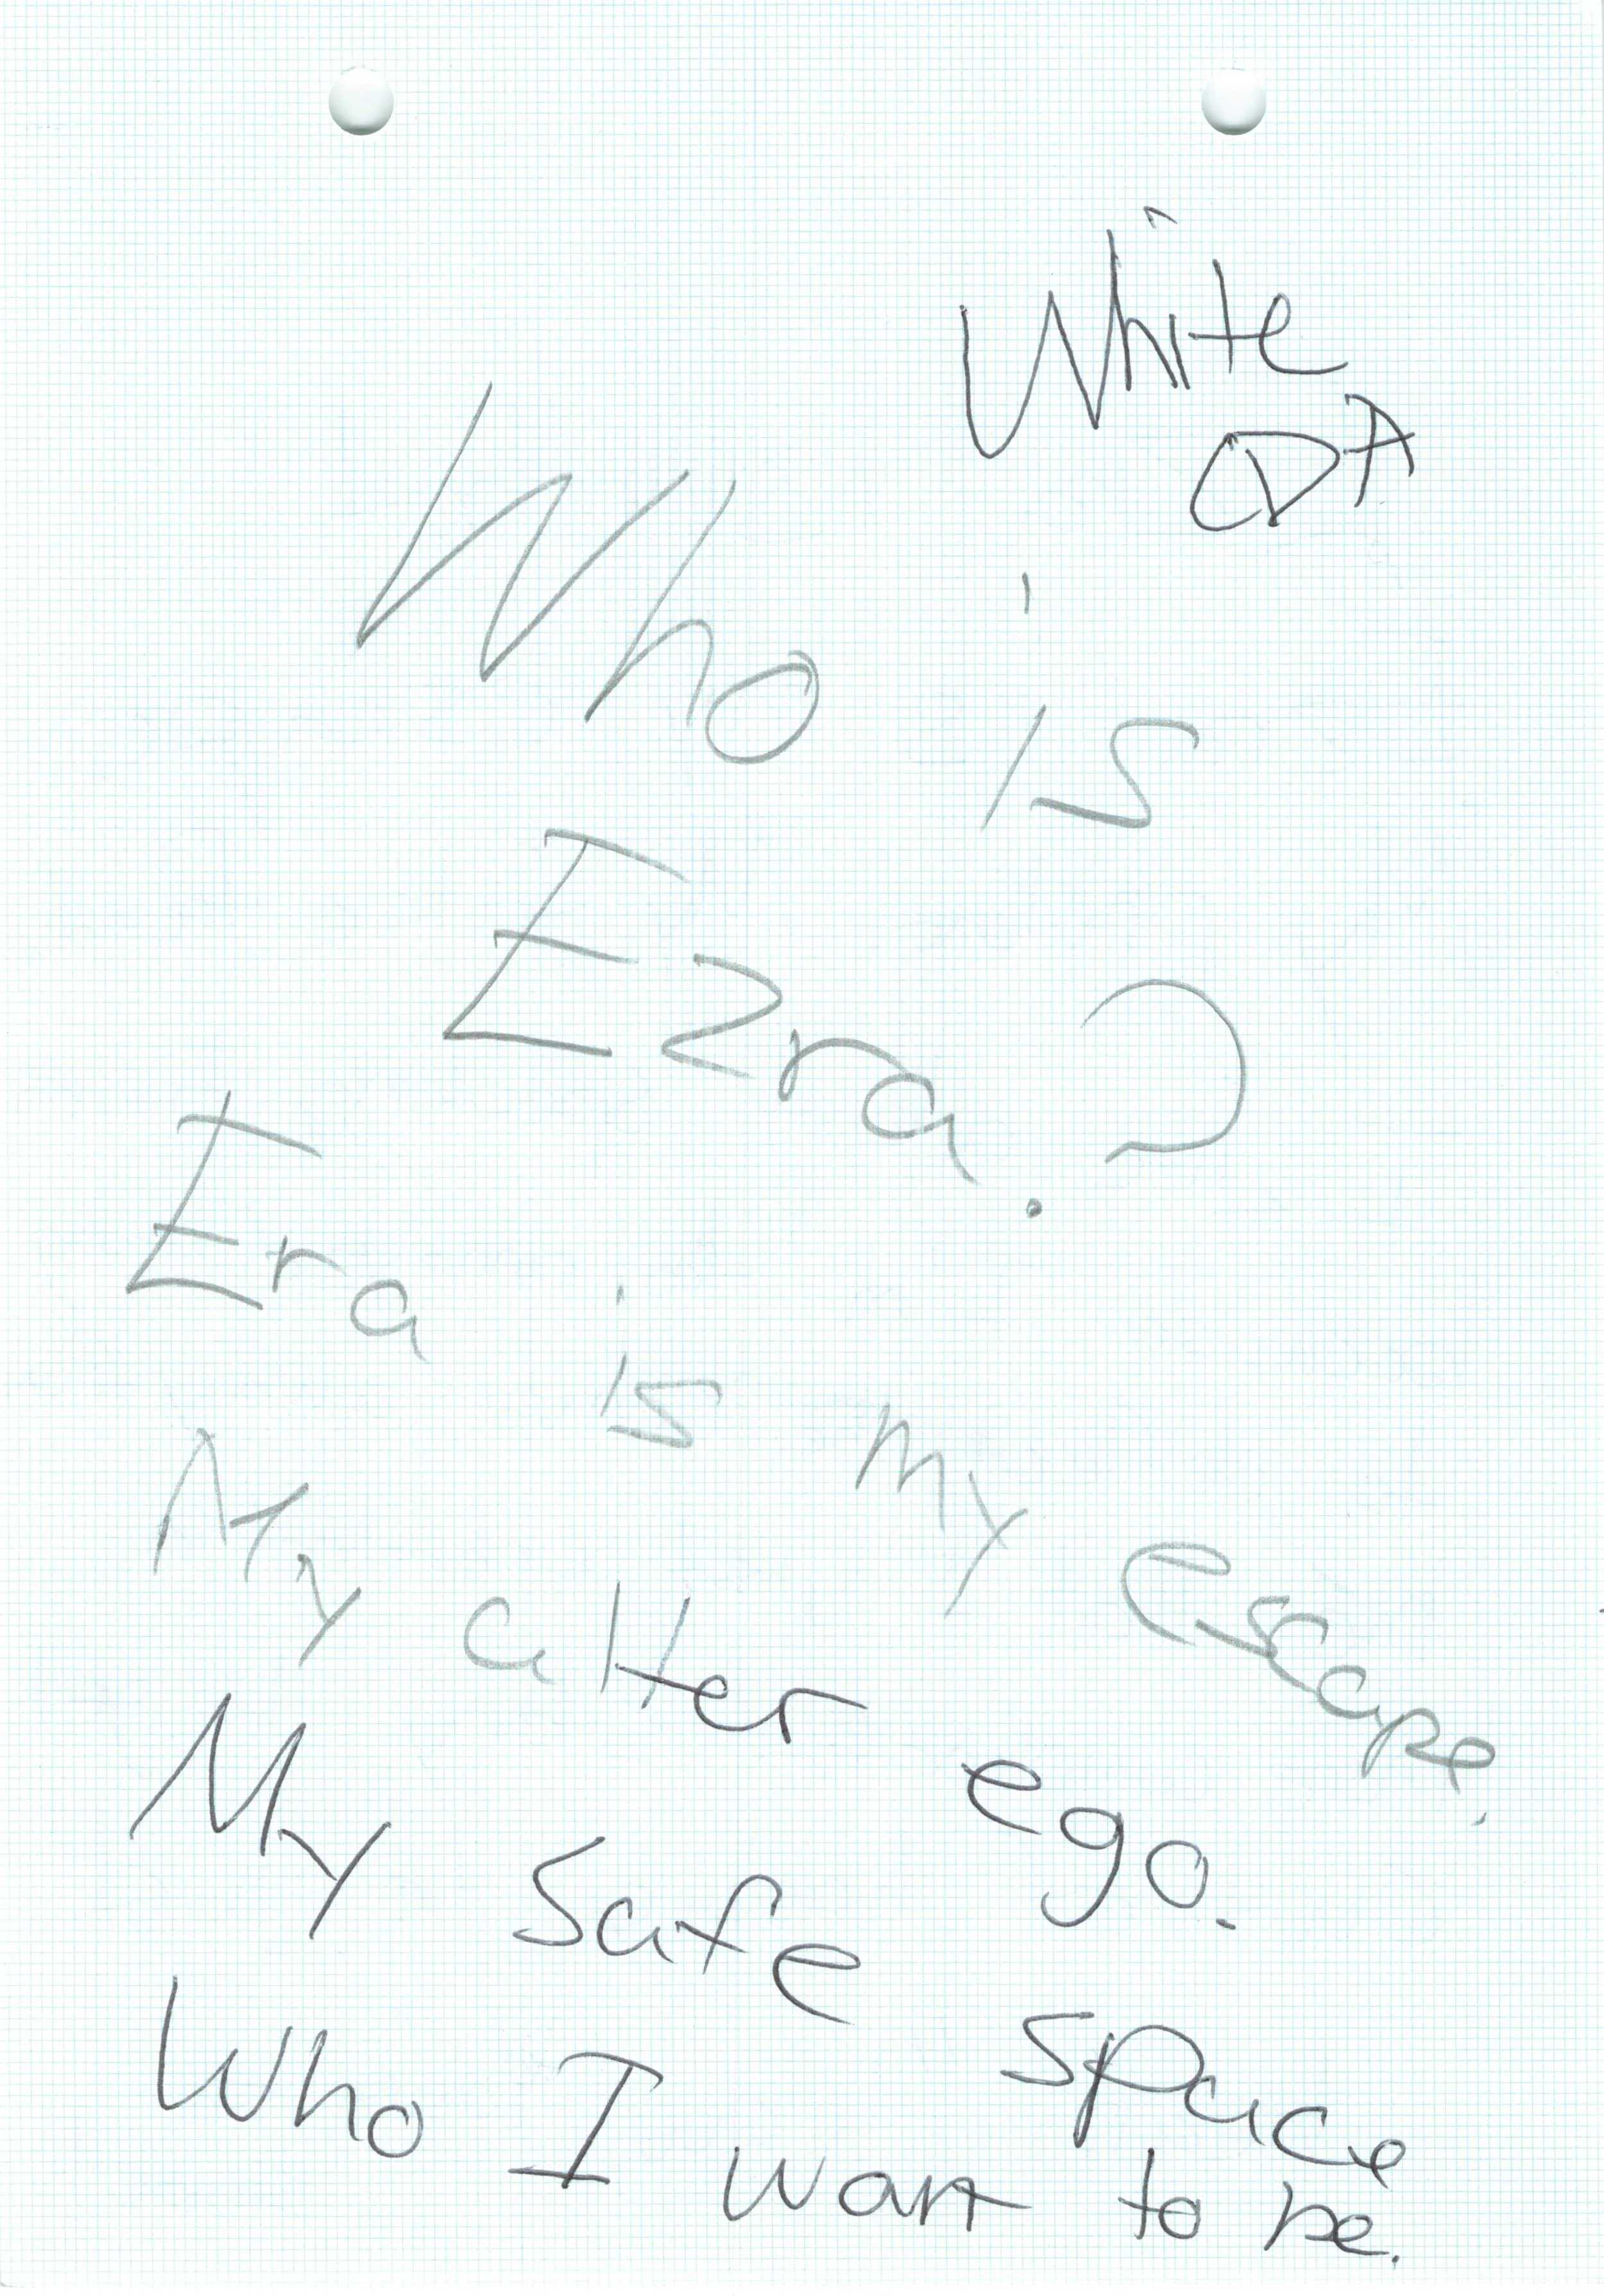 White
CDA
Who is
Ezra?
Era is my escape.
My alter ego.
My safe space
Who I want to be.